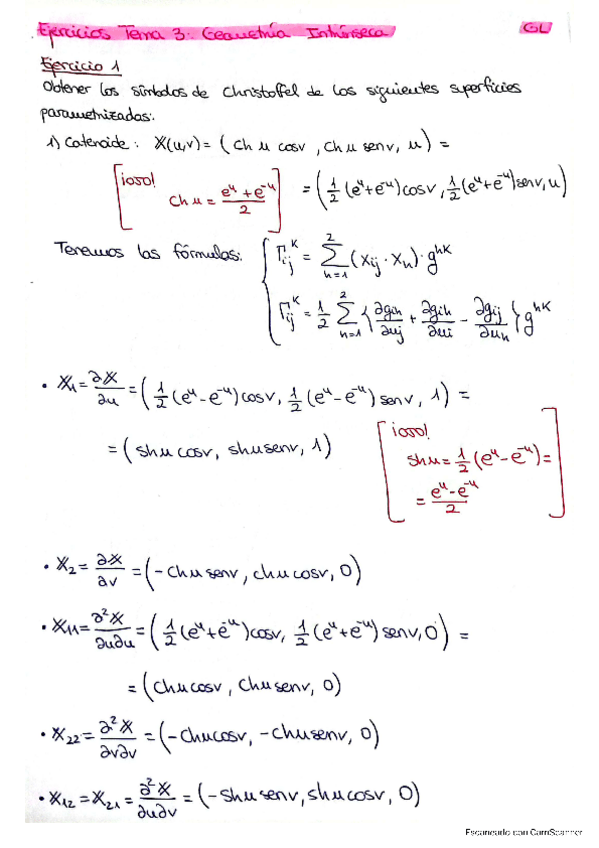 Ejercicios Tema 3: Geometría Intrínseca GL
Ejercicio 1
Obtener los símbolos de Christoffel de las siguientes superficies
parametrizadas:
1) Catenoide: X(u,v) = (ch u cosv, ch u senv, u) =
[¡OJO! ch u = (e^u + e^-u)/2] = (1/2 (e^u+e^-u) cosv, 1/2 (e^u+e^-u) senv, u)
Tenemos las fórmulas: { Γ_ij^K = Σ_{h=1}^{2} (X_ij · X_h) · g^hK
Γ_ij^K = 1/2 Σ_{h=1}^{2} { ∂g_ih/∂u_j + ∂g_jh/∂u_i - ∂g_ij/∂u_h } g^hK
• X_1 = ∂X/∂u = (1/2 (e^u - e^-u) cosv, 1/2 (e^u - e^-u) senv, 1) =
= (shu cosv, shu senv, 1)
[¡OJO!
shu = 1/2 (e^u - e^-u) =
= (e^u - e^-u)/2]
• X_2 = ∂X/∂v = (-chu senv, chu cosv, 0)
• X_11 = ∂²X/∂u∂u = (1/2 (e^u + e^-u) cosv, 1/2 (e^u + e^-u) senv, 0) =
= (chu cosv, chu senv, 0)
• X_22 = ∂²X/∂v∂v = (-chu cosv, -chu senv, 0)
• X_12 = X_21 = ∂²X/∂u∂v = (-shu senv, shu cosv, 0)
Escaneado con CamScanner